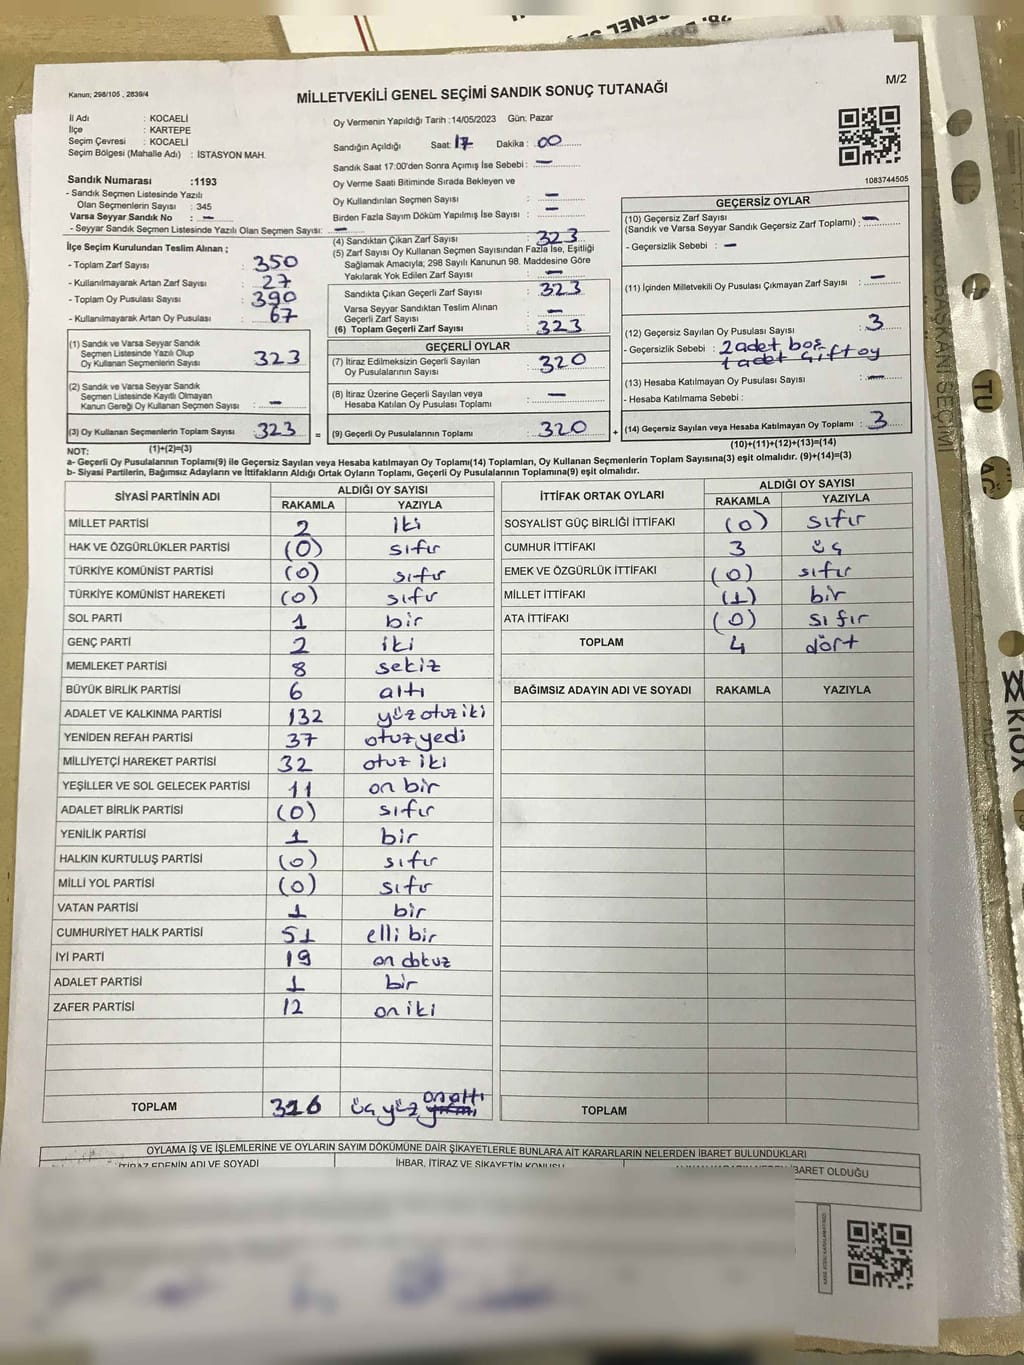 Kanun; 298/105 , 2839/4
M/2
MİLLETVEKİLİ GENEL SEÇİMİ SANDIK SONUÇ TUTANAĞI
İl Adı : KOCAELİ
İlçe : KARTEPE
Seçim Çevresi : KOCAELİ
Seçim Bölgesi (Mahalle Adı) : İSTASYON MAH.
Sandık Numarası :1193
- Sandık Seçmen Listesinde Yazılı
Olan Seçmenlerin Sayısı : 345
Varsa Seyyar Sandık No : —
- Seyyar Sandık Seçmen Listesinde Yazılı Olan Seçmen Sayısı: —
İlçe Seçim Kurulundan Teslim Alınan ;
- Toplam Zarf Sayısı : 350
- Kullanılmayarak Artan Zarf Sayısı : 27
- Toplam Oy Pusulası Sayısı : 390
- Kullanılmayarak Artan Oy Pusulası : 67
(1) Sandık ve Varsa Seyyar Sandık
Seçmen Listesinde Yazılı Olup
Oy Kullanan Seçmenlerin Sayısı : 323
(2) Sandık ve Varsa Seyyar Sandık
Seçmen Listesinde Kayıtlı Olmayan
Kanun Gereği Oy Kullanan Seçmen Sayısı : —
(3) Oy Kullanan Seçmenlerin Toplam Sayısı : 323 =
(1)+(2)=(3)
Oy Vermenin Yapıldığı Tarih :14/05/2023 Gün: Pazar
Sandığın Açıldığı Saat: 17 Dakika : 00
Sandık Saat 17:00'den Sonra Açımış İse Sebebi : —
Oy Verme Saati Bitiminde Sırada Bekleyen ve
Oy Kullandırılan Seçmen Sayısı : —
Birden Fazla Sayım Döküm Yapılmış İse Sayısı : —
(4) Sandıktan Çıkan Zarf Sayısı : 323
(5) Zarf Sayısı Oy Kullanan Seçmen Sayısından Fazla İse, Eşitliği
Sağlamak Amacıyla; 298 Sayılı Kanunun 98. Maddesine Göre
Yakılarak Yok Edilen Zarf Sayısı : —
Sandıkta Çıkan Geçerli Zarf Sayısı : 323
Varsa Seyyar Sandıktan Teslim Alınan
Geçerli Zarf Sayısı : —
(6) Toplam Geçerli Zarf Sayısı : 323
GEÇERLİ OYLAR
(7) İtiraz Edilmeksizin Geçerli Sayılan
Oy Pusulalarının Sayısı : 320
(8) İtiraz Üzerine Geçerli Sayılan veya
Hesaba Katılan Oy Pusulası Toplamı : —
(9) Geçerli Oy Pusulalarının Toplamı : 320 +
1083744505
GEÇERSİZ OYLAR
(10) Geçersiz Zarf Sayısı
(Sandık ve Varsa Seyyar Sandık Geçersiz Zarf Toplamı) : —
- Geçersizlik Sebebi : —
(11) İçinden Milletvekili Oy Pusulası Çıkmayan Zarf Sayısı : —
(12) Geçersiz Sayılan Oy Pusulası Sayısı : 3
- Geçersizlik Sebebi : 2 adet boş
1 adet Çift oy
(13) Hesaba Katılmayan Oy Pusulası Sayısı : —
- Hesaba Katılmama Sebebi :
(14) Geçersiz Sayılan veya Hesaba Katılmayan Oy Toplamı : 3
(10)+(11)+(12)+(13)=(14)
NOT:
a- Geçerli Oy Pusulalarının Toplamı(9) ile Geçersiz Sayılan veya Hesaba katılmayan Oy Toplamı(14) Toplamları, Oy Kullanan Seçmenlerin Toplam Sayısına(3) eşit olmalıdır. (9)+(14)=(3)
b- Siyasi Partilerin, Bağımsız Adayların ve İttifakların Aldığı Ortak Oyların Toplamı, Geçerli Oy Pusulalarının Toplamına(9) eşit olmalıdır.
SİYASİ PARTİNİN ADI ALDIĞI OY SAYISI
RAKAMLA YAZIYLA
MİLLET PARTİSİ 2 iki
HAK VE ÖZGÜRLÜKLER PARTİSİ (0) sıfır
TÜRKİYE KOMÜNİST PARTİSİ (0) sıfır
TÜRKİYE KOMÜNİST HAREKETİ (0) sıfır
SOL PARTİ 1 bir
GENÇ PARTİ 2 iki
MEMLEKET PARTİSİ 8 sekiz
BÜYÜK BİRLİK PARTİSİ 6 altı
ADALET VE KALKINMA PARTİSİ 132 yüz otuz iki
YENİDEN REFAH PARTİSİ 37 otuz yedi
MİLLİYETÇİ HAREKET PARTİSİ 32 otuz iki
YEŞİLLER VE SOL GELECEK PARTİSİ 11 on bir
ADALET BİRLİK PARTİSİ (0) sıfır
YENİLİK PARTİSİ 1 bir
HALKIN KURTULUŞ PARTİSİ (0) sıfır
MİLLİ YOL PARTİSİ (0) sıfır
VATAN PARTİSİ 1 bir
CUMHURİYET HALK PARTİSİ 51 elli bir
İYİ PARTİ 19 on dokuz
ADALET PARTİSİ 1 bir
ZAFER PARTİSİ 12 on iki
TOPLAM 316 üç yüz on altı
İTTİFAK ORTAK OYLARI ALDIĞI OY SAYISI
RAKAMLA YAZIYLA
SOSYALİST GÜÇ BİRLİĞİ İTTİFAKI (0) sıfır
CUMHUR İTTİFAKI 3 üç
EMEK VE ÖZGÜRLÜK İTTİFAKI (0) sıfır
MİLLET İTTİFAKI (1) bir
ATA İTTİFAKI (0) sıfır
TOPLAM 4 dört
BAĞIMSIZ ADAYIN ADI VE SOYADI RAKAMLA YAZIYLA
TOPLAM
OYLAMA İŞ VE İŞLEMLERİNE VE OYLARIN SAYIM DÖKÜMÜNE DAİR ŞİKAYETLERLE BUNLARA AİT KARARLARIN NELERDEN İBARET BULUNDUKLARI
İTİRAZ EDENİN ADI VE SOYADI
İHBAR, İTİRAZ VE ŞİKAYETİN KONUSU
İBARET OLDUĞU
KIOX